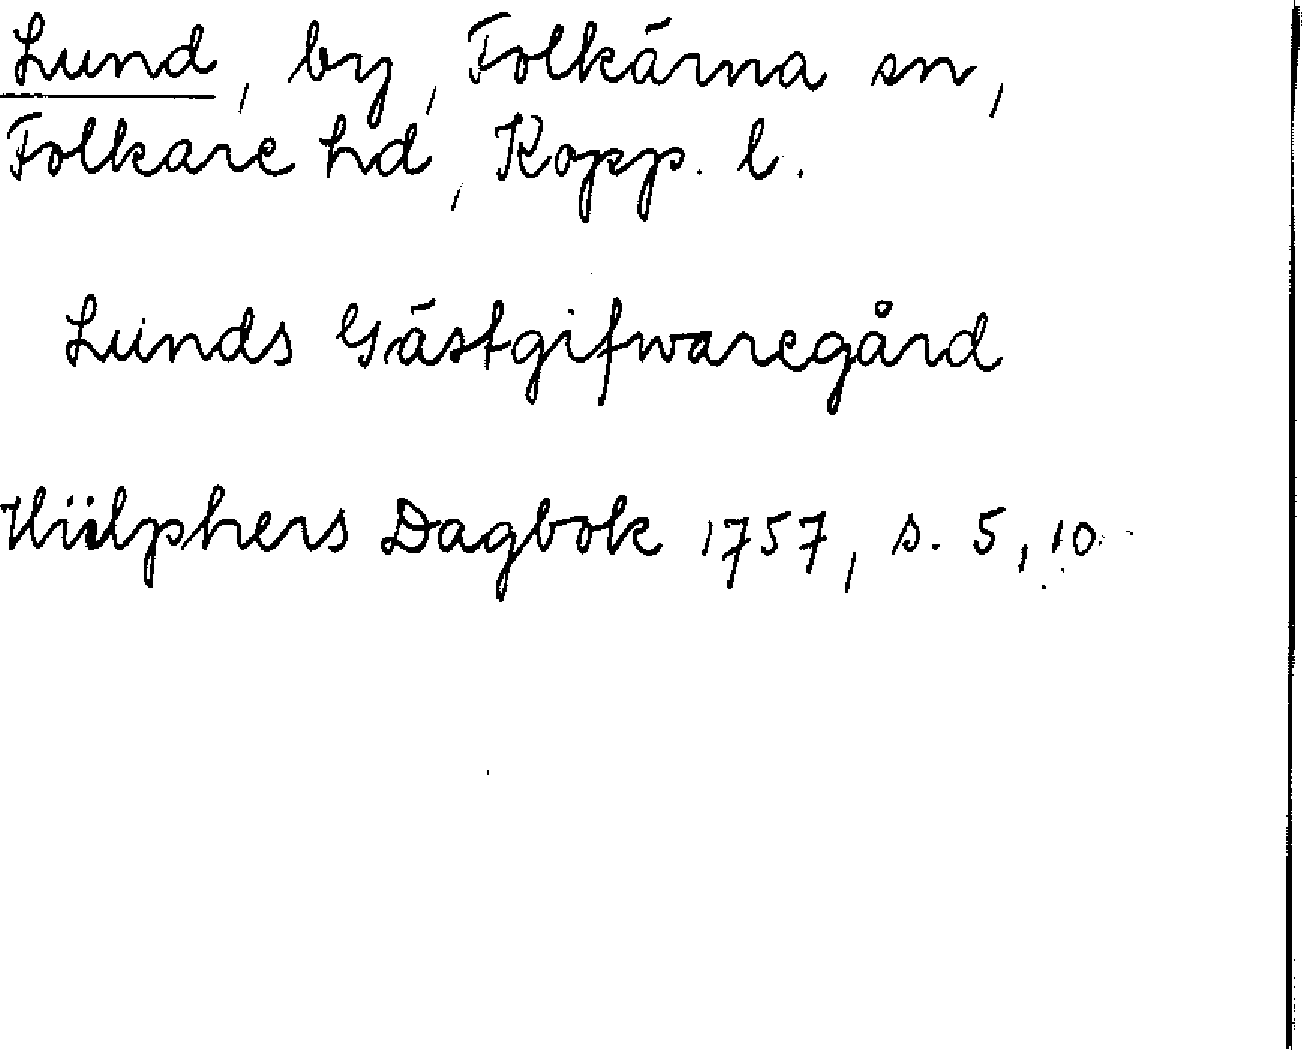 Lund, by, Folkärna sn,
Folkare hd, Kopp. l.
Lunds Gästgifwaregård
Hülphers Dagbok 1757, s. 5, 10